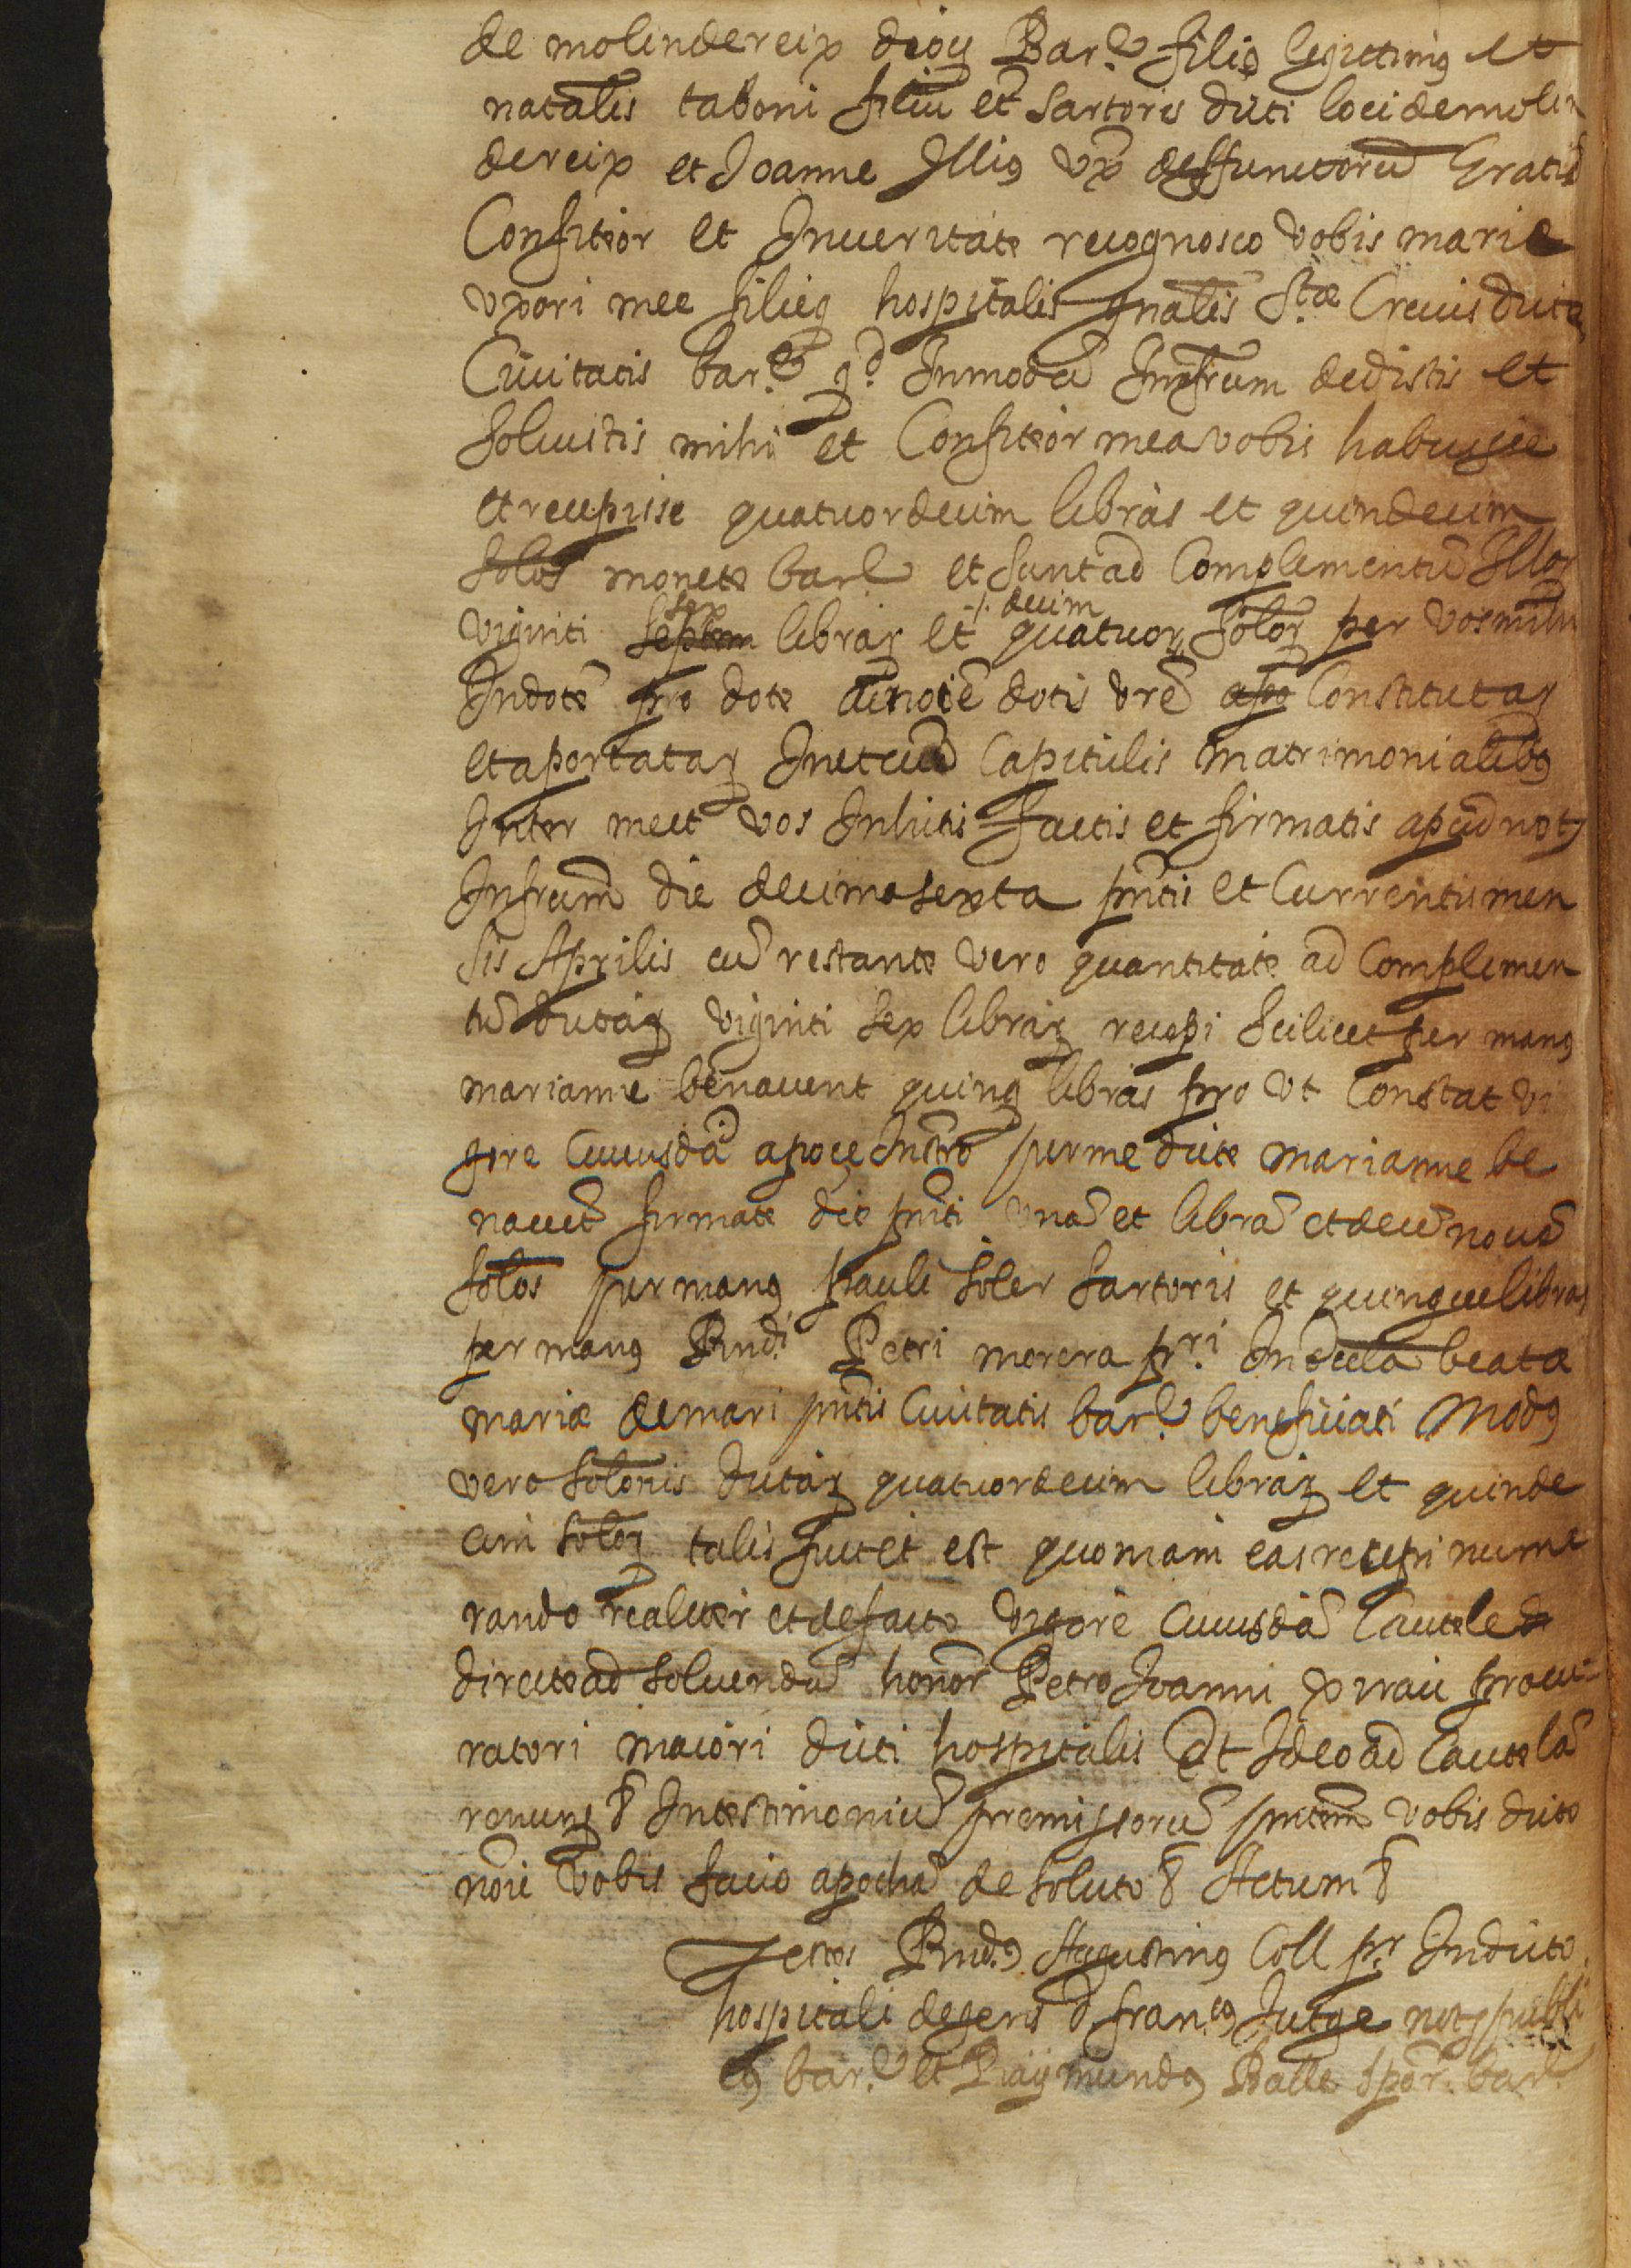 de molindereix diocs Bar.e filio legittims et
natalis taboni filiu et sartoris dicti loci de molin
dereix et Joanne Illius ux deffunctoru Gratis
Confiteor et Inueritate recognosco vobis marie
uxori mee filieq hospitalis gnalis Stæ Crucis dicte
Ciuitatis bar.e qd Inmodu Infrum dedistis et
soluistis mihi et Confiteor mea vobis habuisse
et recepisse quatuordecim libras et quindecim
solos monete barl et sunt ad Complementu Illor
viginti septem sex librar et quatuor decim solor per vos mihi
Indote pro dote et noie dotis vre apo Constitutar
et aportatar In et cu Capitulis matrimonialibs
Inter me et vos Inhitis factis et firmatis apud not
Infrum die decima sexta pntis et Currentis men
sis Aprilis cu restante vero quantitate ad Complemen
tu dictar viginti sex librar recepi scilicet per mans
marianne benauent quinq libras pro ut Constat vi
gore Cuiusda apoce Instro per me dicte marianne be
nauet firmate die pnti una et libra et dece noue
solos per mans pauli soler sartoris et quinque libras
per mans Rndi Petri morera pri. In eccla beatæ
mariæ de mari pntis Ciuitatis barl. beneficiati Mods
vero solonis dictar quatuordecim librar et quinde
cim solor talis fuit et est quoniam eas recepi nume
rando realiter et de facto vigore Cuiusda Cautele
directe ad soluendu honor Petro Joanni xirau procu-
ratori maiori dicti hospitalis Et Ideo ad Cautela
renuns & Intestimoniu premissoru pntem vobis dicto
noie vobis facio apocha de soluto & Actum &
Testes Rnds Agustins Coll pr Indicto
hospitali degens d. francs Jutge not publi
cs bar.e et Raymunds Batlle spor. barl.